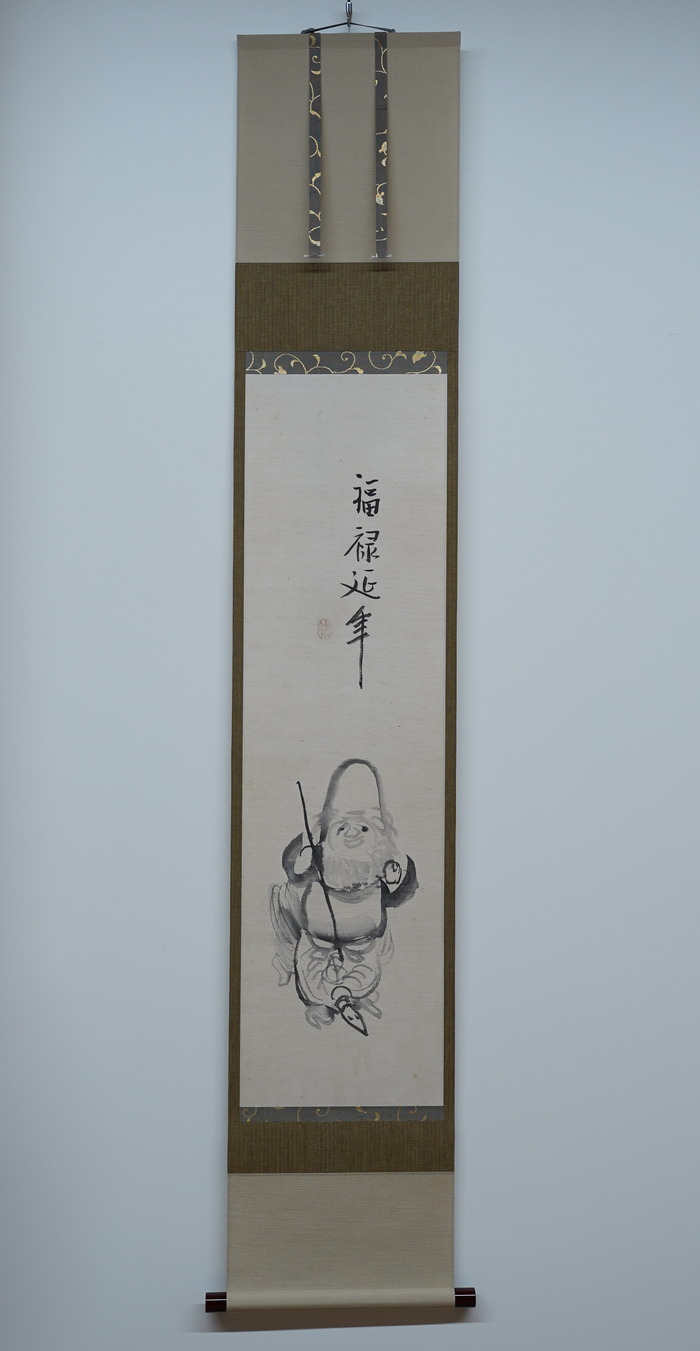 福禄延年